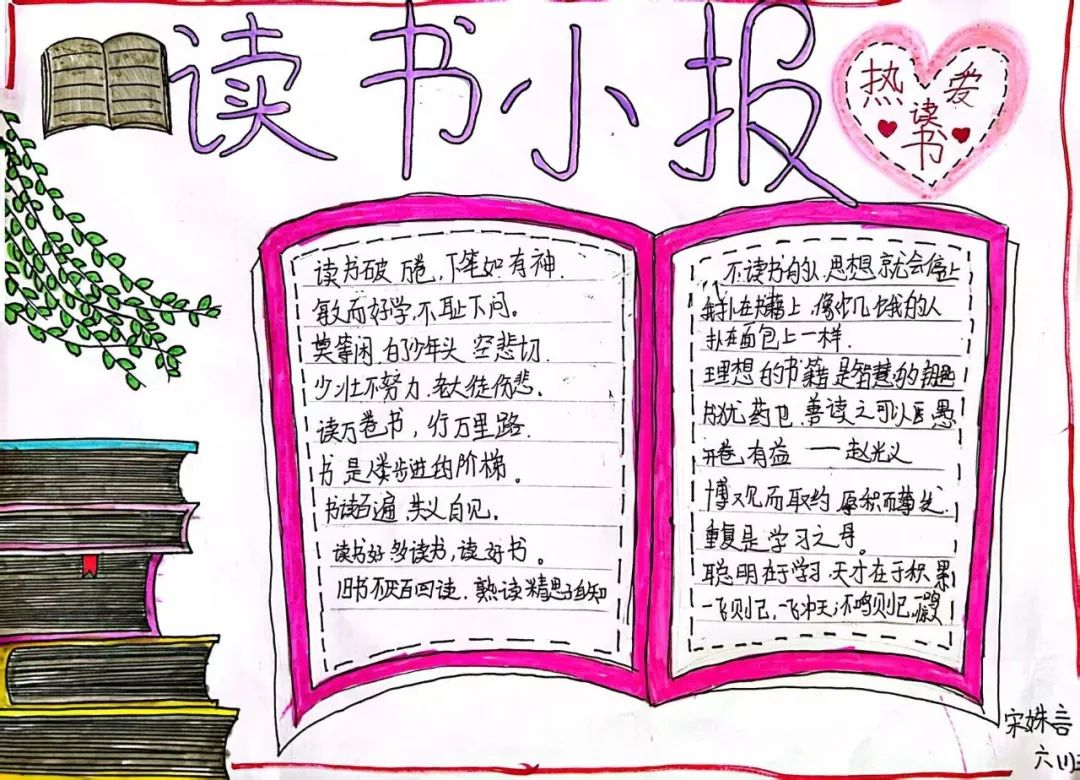 读书小报
热爱
读书
读书破万卷,下笔如有神.
敏而好学,不耻下问。
莫等闲,白了少年头,空悲切.
少壮不努力,老大徒伤悲.
读万卷书,行万里路.
书是人类步进的阶梯。
书读百遍,其义自见.
读书好多读书,读好书。
旧书不厌百回读.熟读精思子自知
不读书的人,思想就会停止
我扑在书籍上,像饥饿的人
扑在面包上一样.
理想的书籍是智慧的钥匙
书犹药也,善读之可以医愚
开卷有益——赵光义
博观而取约 厚积而薄发.
重复是学习之母。
聪明在于学习,天才在于积累
一飞则已,一飞冲天;不鸣则已,一鸣
宋姝言
六